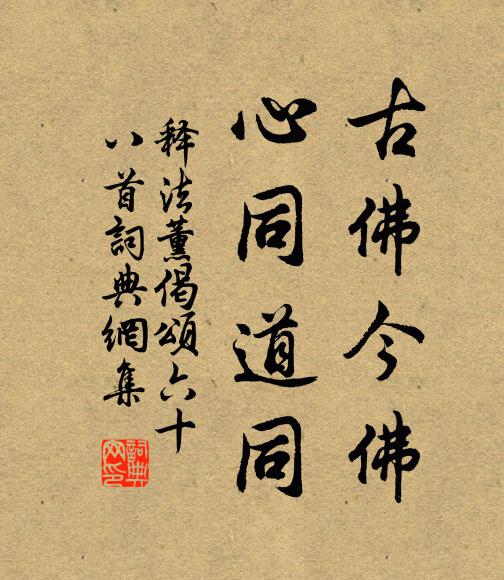 古佛今佛
心同道同
释法薰偈頌六十
八首詞典網集
詞典
网印